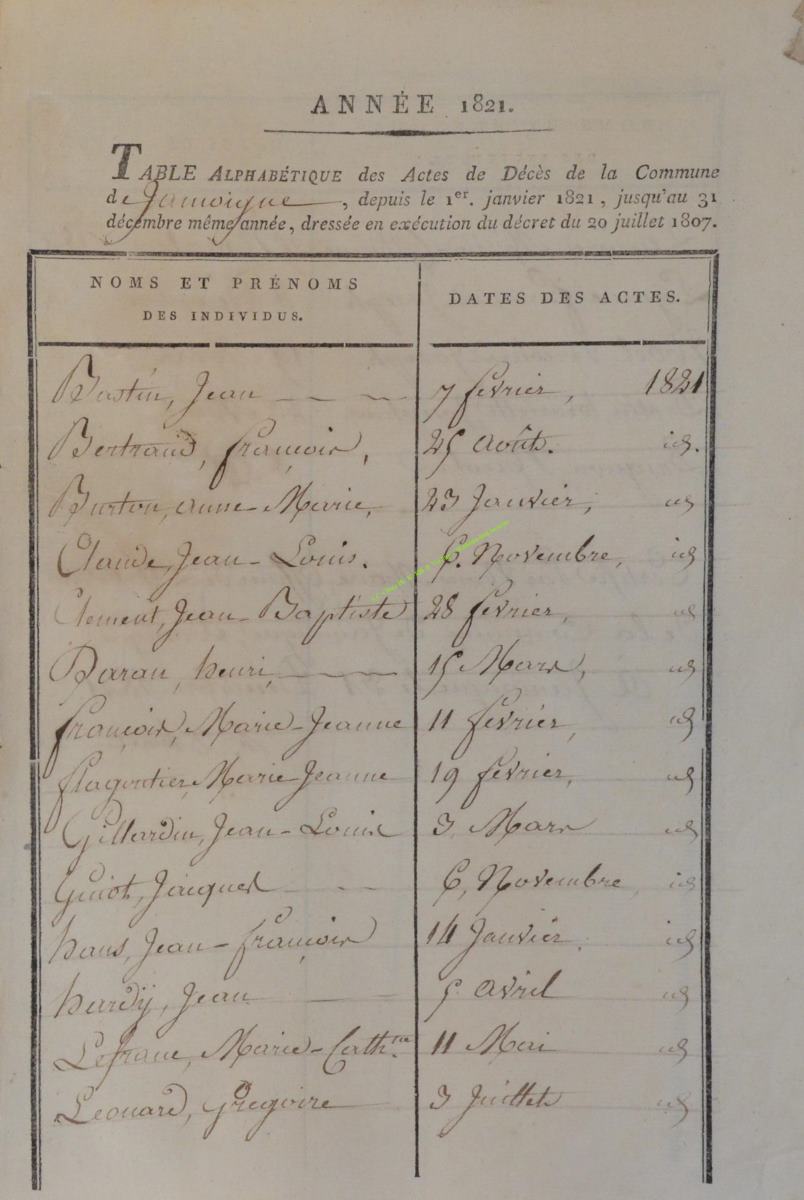 ANNÉE 1821.
TABLE ALPHABÉTIQUE des Actes de Décès de la Commune
de Jamoigne, depuis le 1er. janvier 1821, jusqu'au 31
décembre même année, dressée en exécution du décret du 20 juillet 1807.
NOMS ET PRÉNOMS
DES INDIVIDUS.
DATES DES ACTES.
Bastin, Jean 7 février, 1821
Bertrand, françois, 25 Août. id.
Burton, anne-Marie, 23 Janvier, id
Claude, Jean-Louis. 6. Novembre, id
Clement, Jean-Baptiste 28 février, id
Daran, henri, 15 Mars, id
françois, Marie-Jeanne 11 février, id
flagontier, Marie Jeanne 19 février, id
Gillardin, Jean-Louis 3 Mars id
Guiot, Jacques 6, Novembre id
hans, Jean-françois 14 Janvier. id
hardij, Jean 5 avril id
Lefranc, Marie-Cath.ne 11 Mai id
Léonard, Gregoire 3 Juillet id